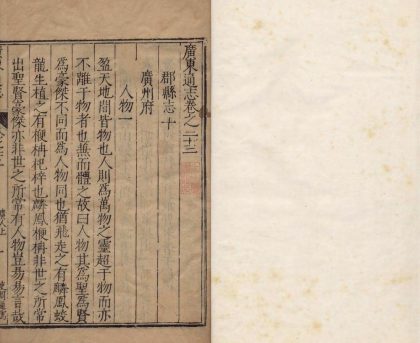 廣東通志卷之二十三
郡縣志十
廣州府
人物一
盈天地間皆物也人則爲萬物之靈超于物而亦
不離于物者也兼而體之故曰人物其爲聖爲賢
爲豪傑不同而爲人物同也猶飛走之有麟鳳蛟
龍生植之有楩楠杞梓也麟鳳楩楠非世之所常
出聖賢豪傑亦非世之所常有人物豈易易言哉